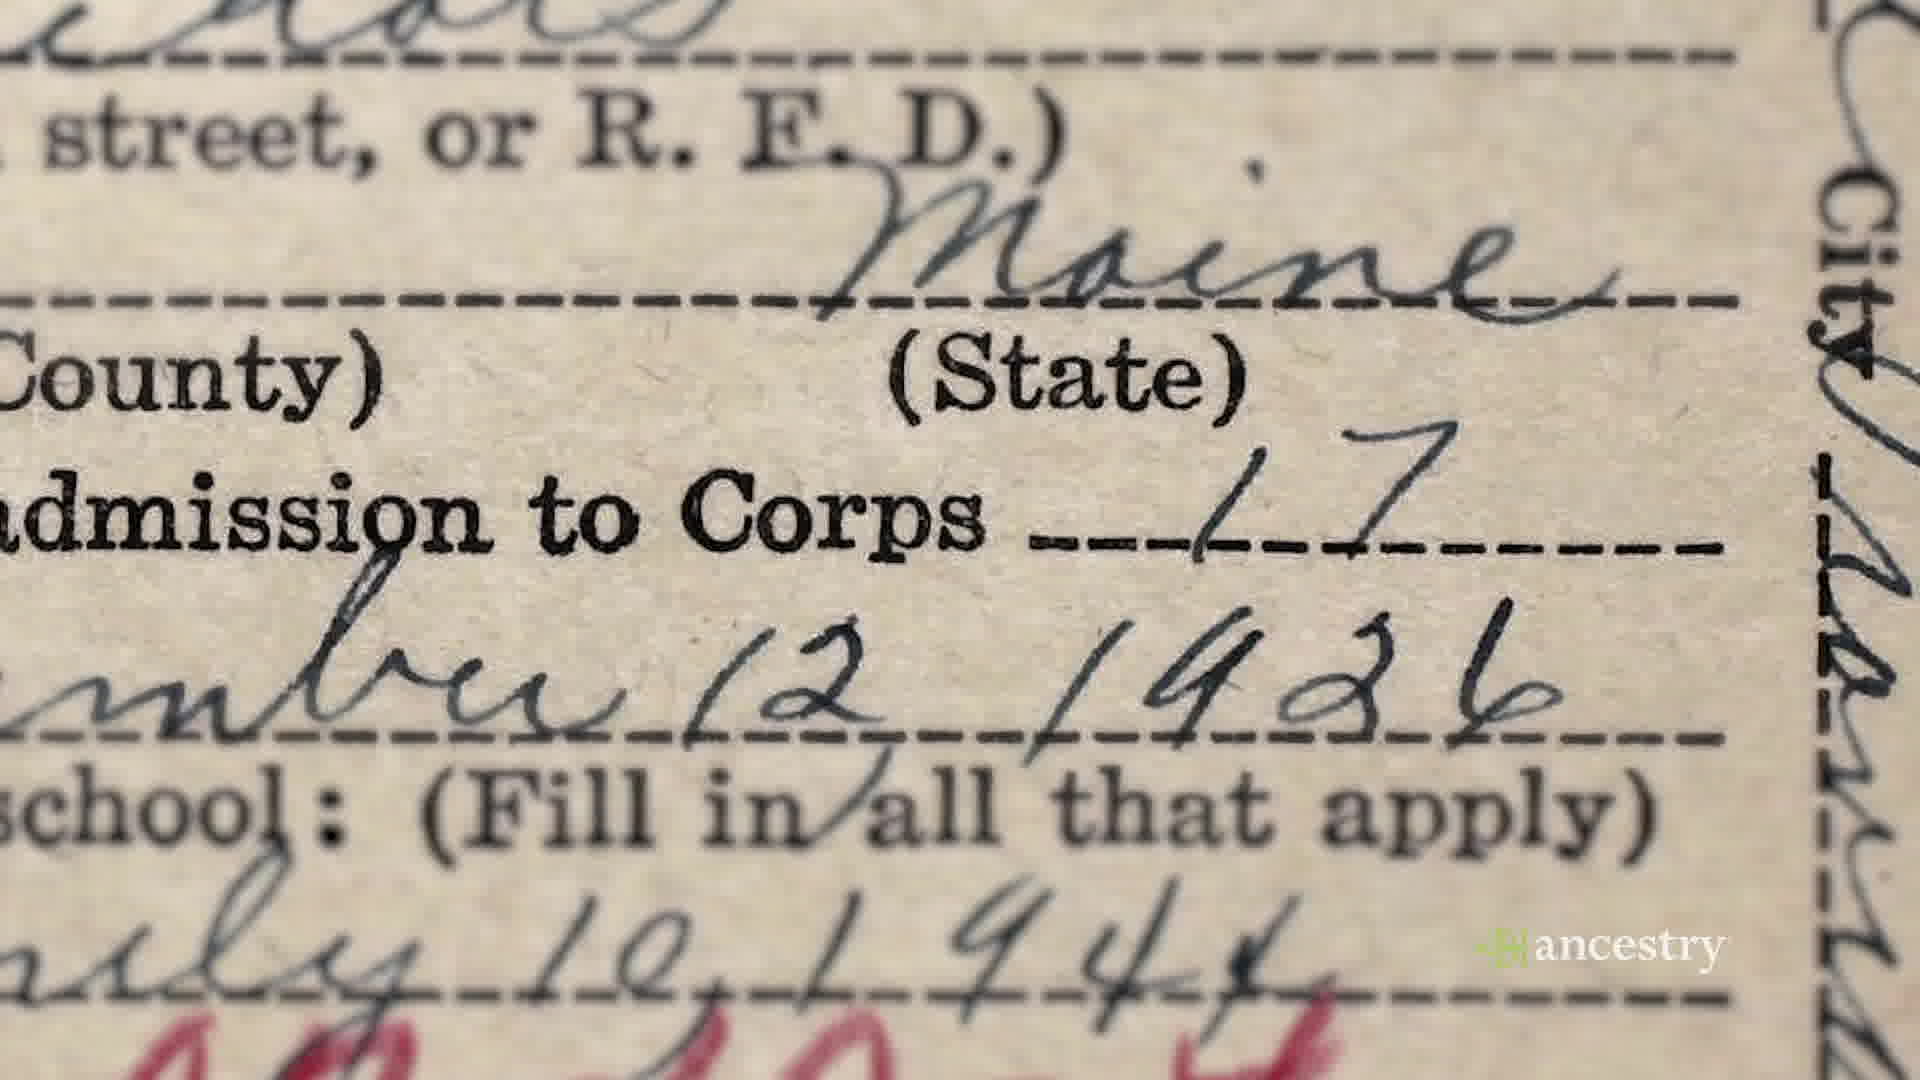 street, or R. F. D.)
Maine
County) (State)
admission to Corps 17
mber 12, 1926
school: (Fill in all that apply)
10, 1944
ancestry
City